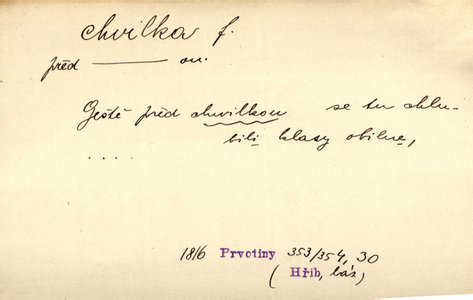 chvilka f.
před ——— ou.
Geště před chwilkou se tu chlu-
bili klasy obilne,
. . . .
1816 Prvotiny 353/354, 30
( Hřib, báz)